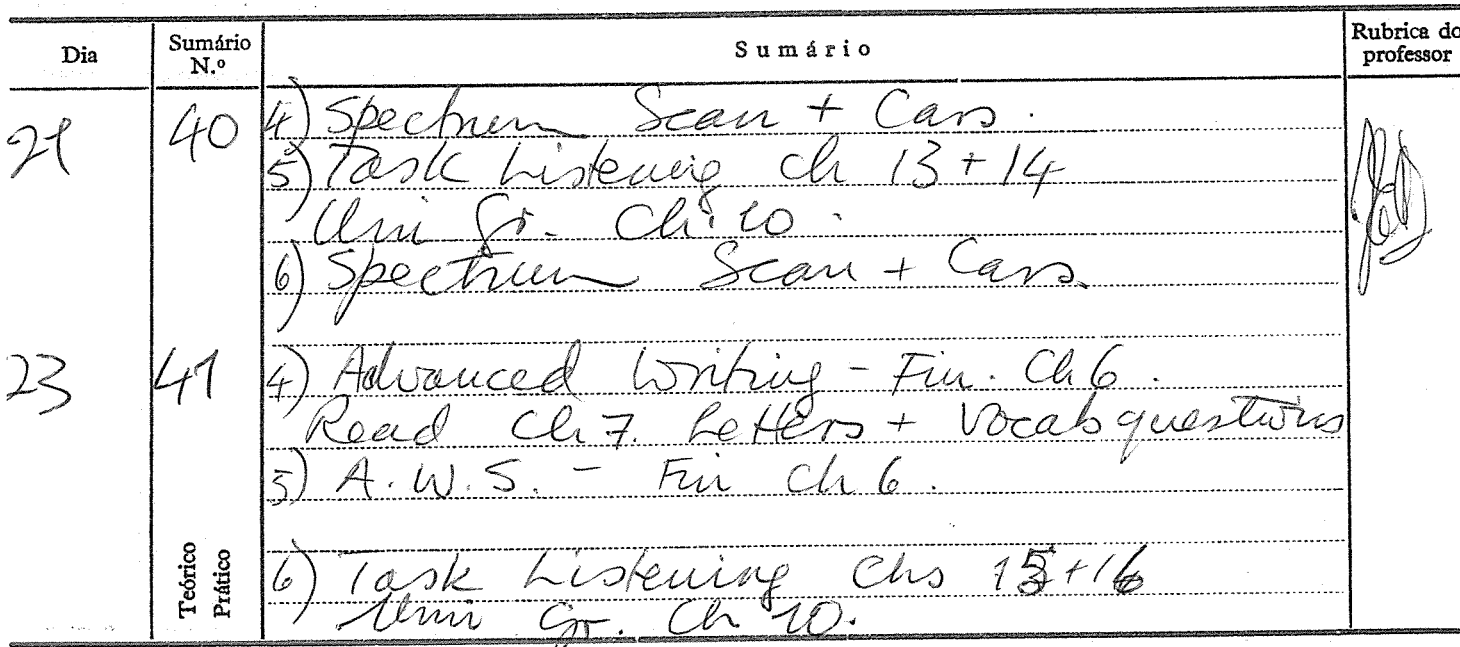 Dia Sumário N.º Sumário Rubrica do professor
21 40 4) Spectrum Scan + Cars.
5) Task Listening Ch 13 + 14
Uni Gr. Ch. 10.
6) Spectrum Scan + Cars.
23 41 4) Advanced Writing - Fin. Ch 6.
Read Ch 7. Letters + Vocab questions
5) A.W.S. - Fin Ch 6.
Teórico Prático
6) Task Listening Chs 15+16
Uni Gr. Ch 10.